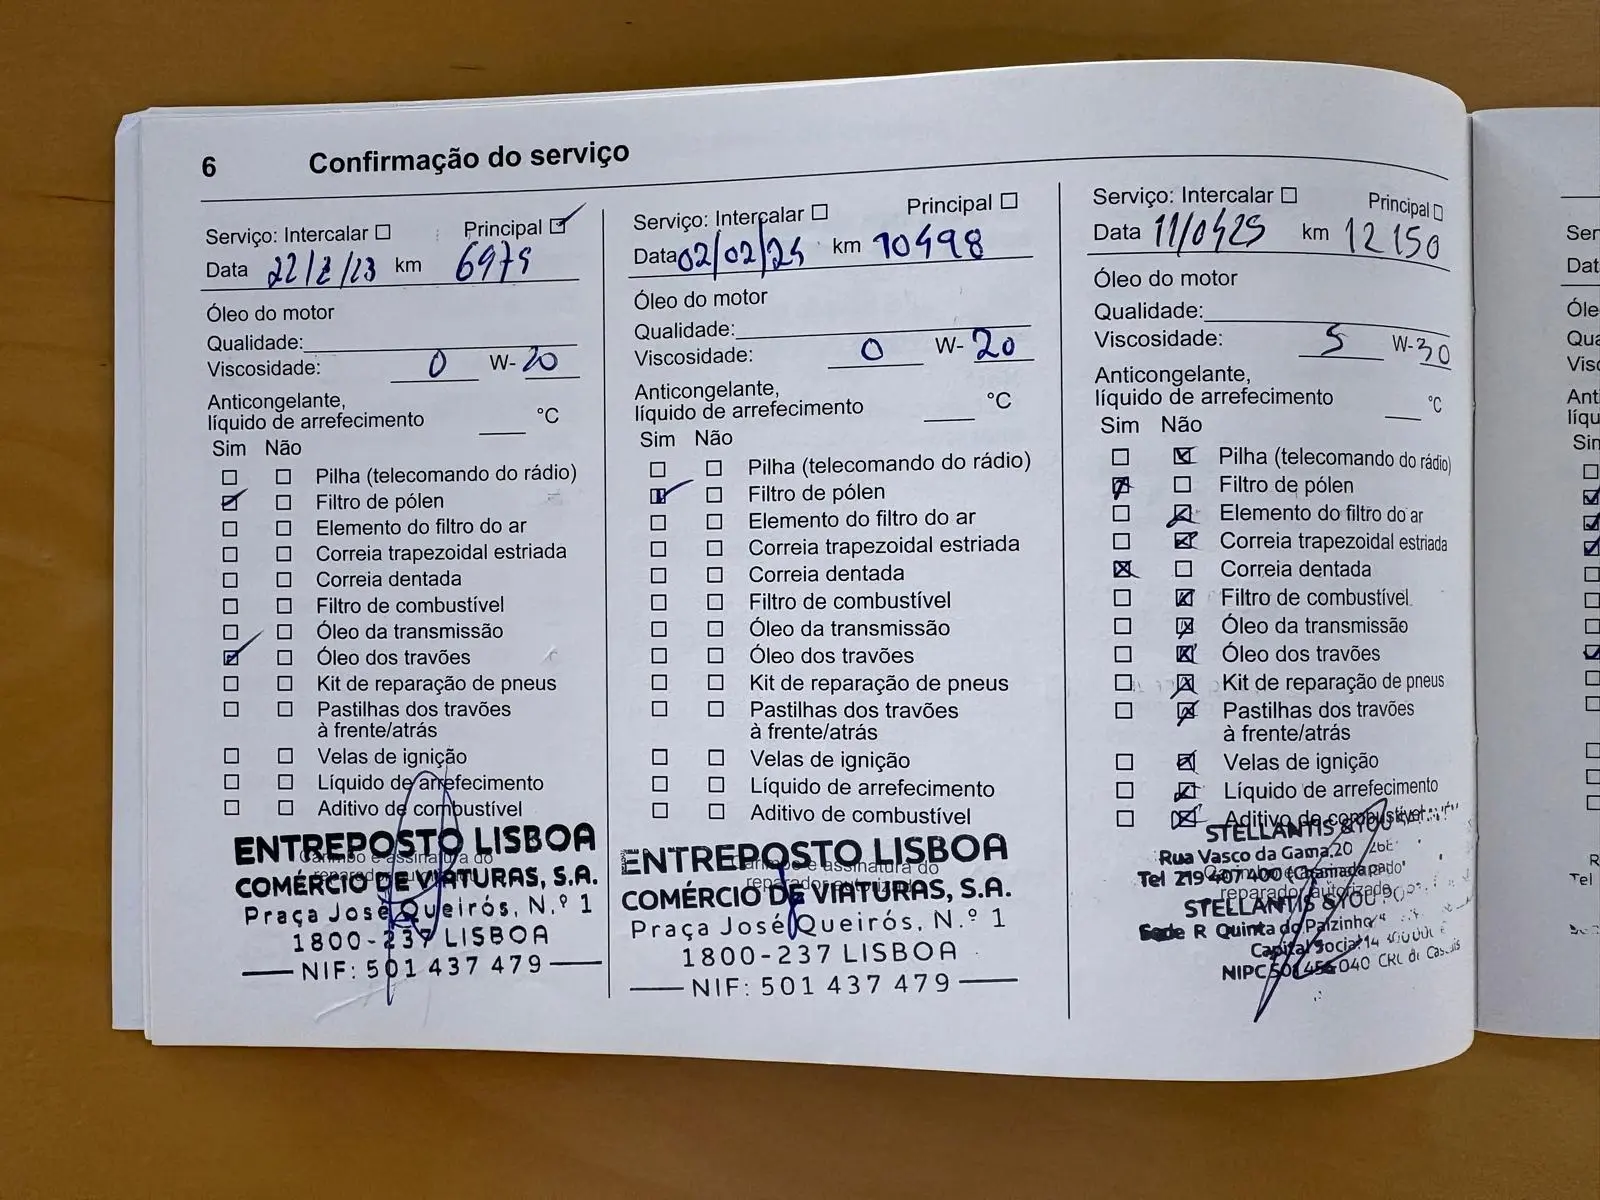 6 Confirmação do serviço
Serviço: Intercalar ☐ Principal ☑
Data 22/2/23 km 6979
Óleo do motor
Qualidade:
Viscosidade: 0 W-20
Anticongelante,
líquido de arrefecimento °C
Sim Não
☐ ☐ Pilha (telecomando do rádio)
☑ ☐ Filtro de pólen
☐ ☐ Elemento do filtro do ar
☐ ☐ Correia trapezoidal estriada
☐ ☐ Correia dentada
☐ ☐ Filtro de combustível
☐ ☐ Óleo da transmissão
☑ ☐ Óleo dos travões
☐ ☐ Kit de reparação de pneus
☐ ☐ Pastilhas dos travões
à frente/atrás
☐ ☐ Velas de ignição
☐ ☐ Líquido de arrefecimento
☐ ☐ Aditivo de combustível
Carimbo e assinatura do
reparador
ENTREPOSTO LISBOA
COMÉRCIO DE VIATURAS, S.A.
Praça José Queirós, N.º 1
1800-237 LISBOA
NIF: 501 437 479
Serviço: Intercalar ☐ Principal ☐
Data 02/02/24 km 10498
Óleo do motor
Qualidade:
Viscosidade: 0 W-20
Anticongelante,
líquido de arrefecimento °C
Sim Não
☐ ☐ Pilha (telecomando do rádio)
☑ ☐ Filtro de pólen
☐ ☐ Elemento do filtro do ar
☐ ☐ Correia trapezoidal estriada
☐ ☐ Correia dentada
☐ ☐ Filtro de combustível
☐ ☐ Óleo da transmissão
☐ ☐ Óleo dos travões
☐ ☐ Kit de reparação de pneus
☐ ☐ Pastilhas dos travões
à frente/atrás
☐ ☐ Velas de ignição
☐ ☐ Líquido de arrefecimento
☐ ☐ Aditivo de combustível
Carimbo e assinatura do
reparador autorizado
ENTREPOSTO LISBOA
COMÉRCIO DE VIATURAS, S.A.
Praça José Queirós, N.º 1
1800-237 LISBOA
NIF: 501 437 479
Serviço: Intercalar ☐ Principal ☐
Data km 12150
Óleo do motor
Qualidade:
Viscosidade: 5 W-30
Anticongelante,
líquido de arrefecimento °C
Sim Não
☐ ☒ Pilha (telecomando do rádio)
☒ ☐ Filtro de pólen
☐ ☒ Elemento do filtro do ar
☐ ☒ Correia trapezoidal estriada
☒ ☐ Correia dentada
☐ ☒ Filtro de combustível
☐ ☒ Óleo da transmissão
☐ ☒ Óleo dos travões
☐ ☒ Kit de reparação de pneus
☐ ☒ Pastilhas dos travões
à frente/atrás
☐ ☒ Velas de ignição
☐ ☒ Líquido de arrefecimento
☐ ☒ Aditivo de combustível
STELLANTIS &YOU
Rua Vasco da Gama,20
Tel 219 407 400 (Chamada
reparador autorizado
STELLANTIS &YOU
Sede R Quinta do Paizinho
Capital Social 14
NIPC 040 CRC de Cascais